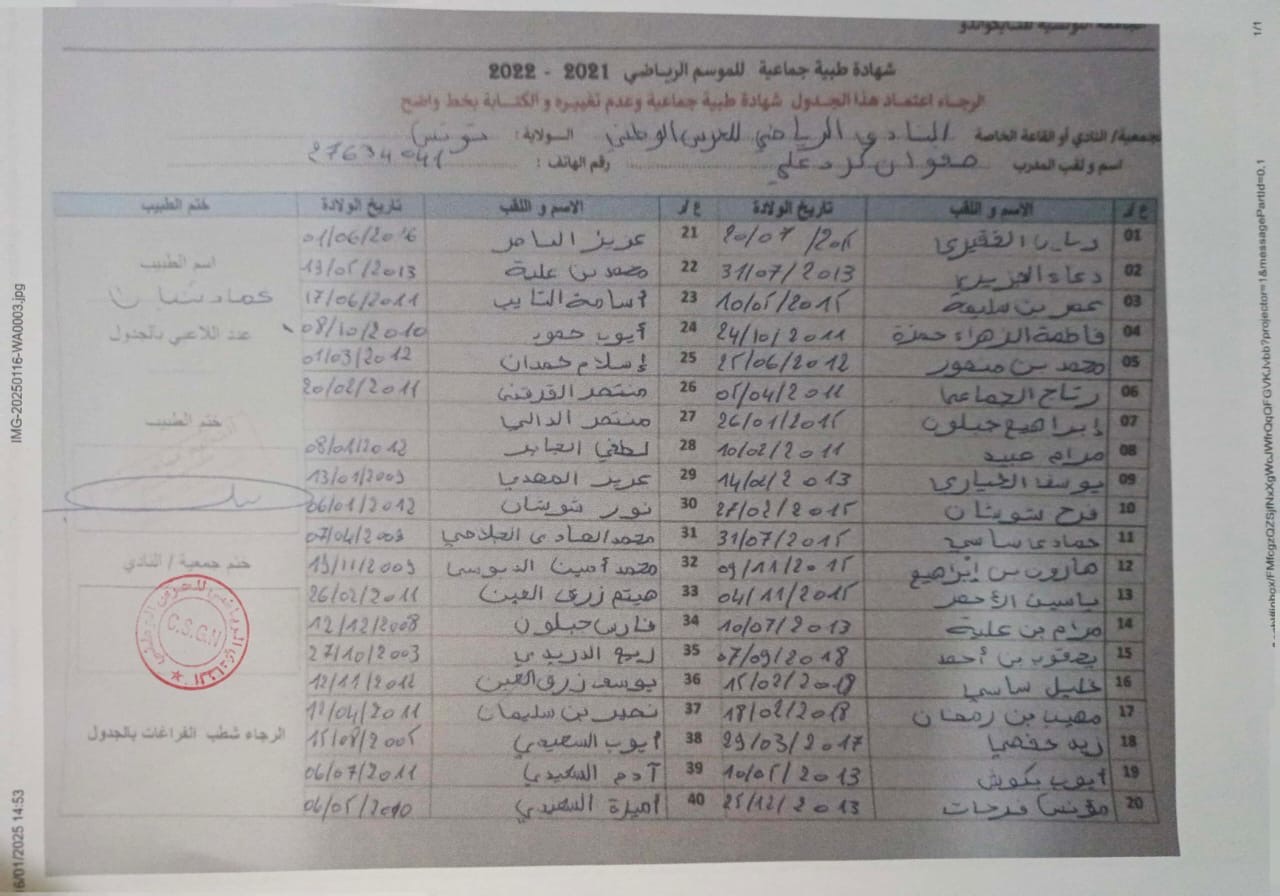 الجامعة التونسية للتايكواندو
شهادة طبية جماعية للموسم الرياضي 2021 - 2022
الرجاء اعتماد هذا الجدول شهادة طبية جماعية وعدم تغييره و الكتابة بخط واضح
جمعية/ النادي أو القاعة الخاصة النادي الرياضي للحرس الوطني الولاية: تونس
اسم و لقب المدرب صفوان كرد علي رقم الهاتف : 27634041
ع ر الاسم و اللقب تاريخ الولادة ع ر الاسم و اللقب تاريخ الولادة ختم الطبيب
01 20/07 21 عزيز 01/06/2016
02 دعاء 31/07/2013 22 محمد بن علية 13/05/2013
اسم الطبيب
03 عمر بن سليمة 10/05/2015 23 أسامة التايب 17/06/2011
04 فاطمة الزهراء حمزة 24/10/2011 24 أيوب حمود 08/10/2010
عدد اللاعبي بالجدول
05 محمد بن منصور 25/06/2012 25 إسلام حمدان 01/03/2012
06 رتاج 05/04/2011 26 منتصر 20/02/2011
07 إبراهيم جبلون 26/01/2015 27 منتصر الدالي
ختم الطبيب
08 مرام عبيد 10/02/2011 28 لطفي العابد 08/01/2012
09 يوسف الخياري 14/02/2013 29 عزيز المهدي 13/01/2009
10 فرح شوشان 27/02/2015 30 نور شوشان 06/01/2012
11 حمادي ساسي 31/07/2015 31 محمد الهادي 07/04/2009
12 هارون بن إبراهيم 09/11/2015 32 محمد أمين 19/11/2009
ختم جمعية / النادي
13 ياسين الأحمر 04/11/2015 33 هيتم زرق العين 26/02/2011
14 مرام بن علية 10/07/2013 34 فارس جبلون 12/12/2008
C.S.G.N
15 يعقوب بن أحمد 07/09/2018 35 ربيع الدريدي 27/10/2003
16 خليل ساسي 15/02/2018 36 يوسف زرق العين 12/11/2012
17 مهيب بن رمضان 18/02/2018 37 نصير بن سليمان 12/04/2011
18 زيد حفصي 29/03/2017 38 أيوب السعيدي 15/08/2005
الرجاء شطب الفراغات بالجدول
19 أيوب بكوش 10/05/2013 39 آدم السعيدي 06/07/2011
20 مؤنس فرحات 25/12/2013 40 أميرة السعيدي 04/05/2010
IMG-20250116-WA0003.jpg
16/01/2025 14:53
1/1